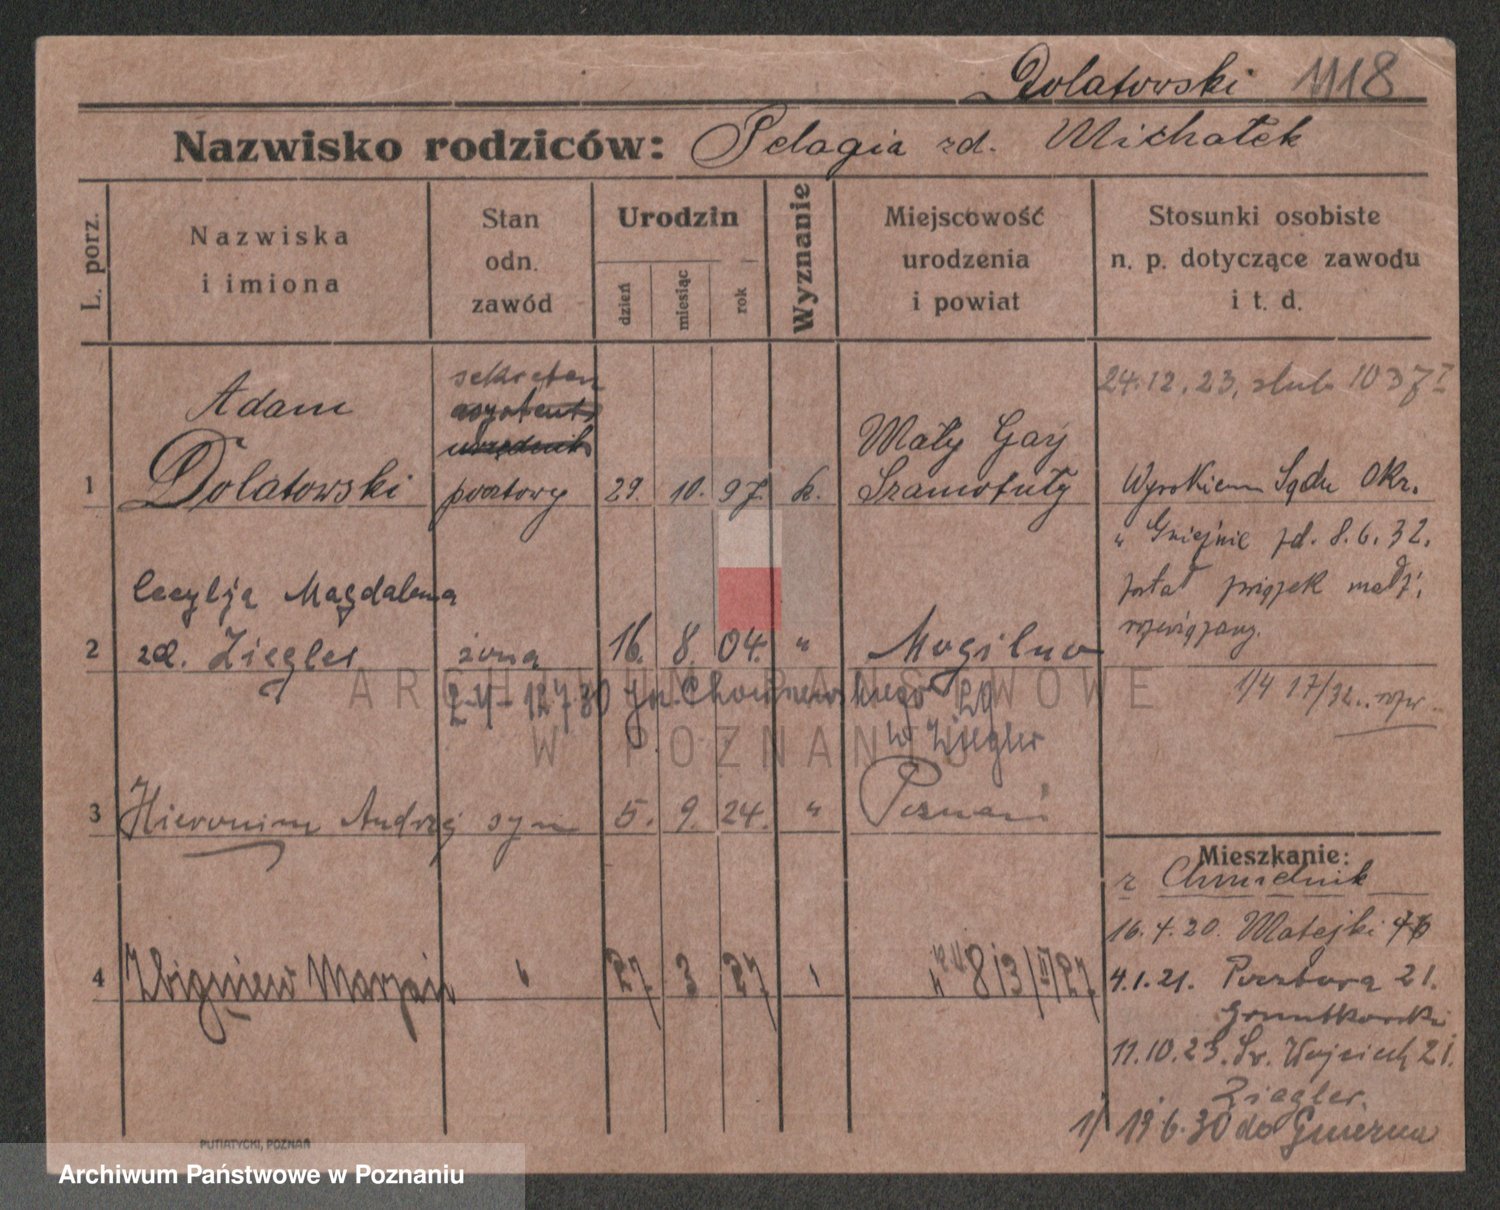 Dolatowski 1118
Nazwisko rodziców: Pelagia zd. Michałek
L. porz.
Nazwiska
i imiona
Stan
odn.
zawód
Urodzin
dzień
miesiąc
rok
Wyznanie
Miejscowość
urodzenia
i powiat
Stosunki osobiste
n. p. dotyczące zawodu
i t. d.
24.12.23, ślub 1037 I
1
Adam
Dolatowski
sekretarz
asystent
pocztowy
29. 10. 97. k.
Mały Gay
Szamotuły
Wyrokiem Sądu Okr.
w Gnieźnie zd. 8.6.32.
został związek małż.
rozwiązany.
1/4 17/32. rozw.
2
Cecylja Magdalena
zd. Ziegler
żona
16. 8. 04. "
Mogilno
12.7.30
29
w Ziegler
3
Hieronim Andrzej
syn
5. 9. 24. "
Poznań
4
Zbigniew Marjan
"
27 3 27
"
" 813/II/27
Mieszkanie:
z Chmielnik
16.4.20. Matejki
4.1.21. Pocztowa 21.
11.10.23. Św. Wojciech 21.
Ziegler.
1/ 19.6.30 do Gniezna
PUTIATYCKI, POZNAŃ
ARCHIWUM PAŃSTWOWE
W POZNANIU
Archiwum Państwowe w Poznaniu